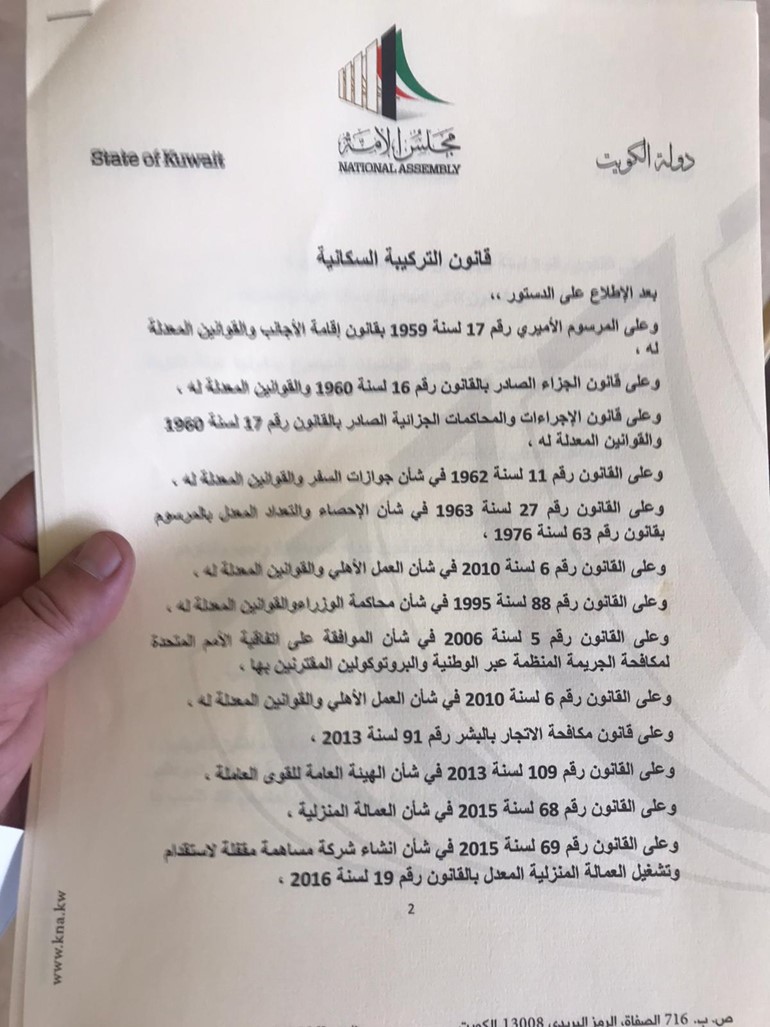 مجلس الأمة
NATIONAL ASSEMBLY
State of Kuwait
دولة الكويت
قانون التركيبة السكانية
بعد الإطلاع على الدستور ،،
وعلى المرسوم الأميري رقم 17 لسنة 1959 بقانون إقامة الأجانب والقوانين المعدلة
له ،
وعلى قانون الجزاء الصادر بالقانون رقم 16 لسنة 1960 والقوانين المعدلة له ،
وعلى قانون الإجراءات والمحاكمات الجزائية الصادر بالقانون رقم 17 لسنة 1960
والقوانين المعدلة له ،
وعلى القانون رقم 11 لسنة 1962 في شأن جوازات السفر والقوانين المعدلة له ،
وعلى القانون رقم 27 لسنة 1963 في شأن الإحصاء والتعداد المعدل بالمرسوم
بقانون رقم 63 لسنة 1976 ،
وعلى القانون رقم 6 لسنة 2010 في شأن العمل الأهلي والقوانين المعدلة له ،
وعلى القانون رقم 88 لسنة 1995 في شأن محاكمة الوزراءوالقوانين المعدلة له ،
وعلى القانون رقم 5 لسنة 2006 في شأن الموافقة على اتفاقية الأمم المتحدة
لمكافحة الجريمة المنظمة عبر الوطنية والبروتوكولين المقترنين بها ،
وعلى القانون رقم 6 لسنة 2010 في شأن العمل الأهلي والقوانين المعدلة له ،
وعلى قانون مكافحة الاتجار بالبشر رقم 91 لسنة 2013 ،
وعلى القانون رقم 109 لسنة 2013 في شأن الهيئة العامة للقوى العاملة ،
وعلى القانون رقم 68 لسنة 2015 في شأن العمالة المنزلية ،
وعلى القانون رقم 69 لسنة 2015 في شأن انشاء شركة مساهمة مقفلة لاستقدام
وتشغيل العمالة المنزلية المعدل بالقانون رقم 19 لسنة 2016 ،
2
www.kna.kw
ص. ب. 716 الصفاة، الرمز البريدي 13008 الكويت